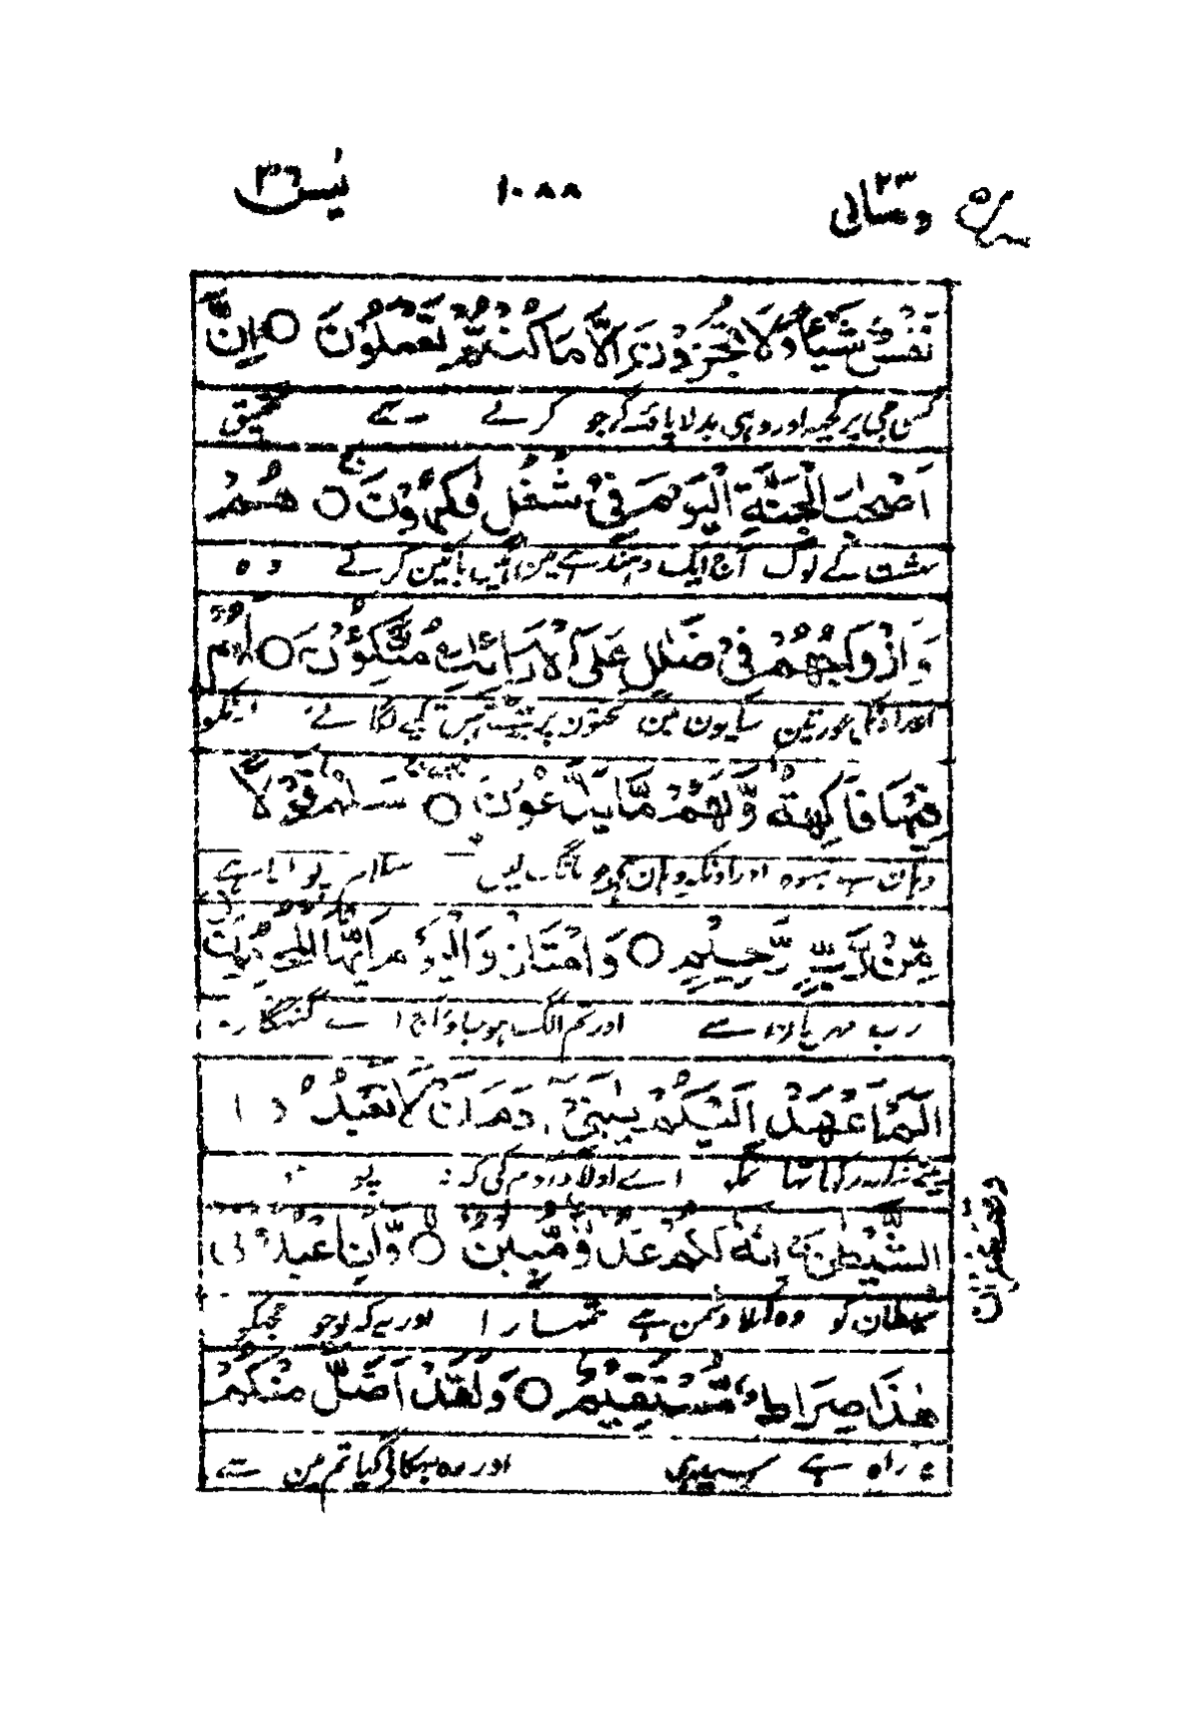 ومالی ۲۳ ۱۰۸۸ یٰس ۳۶
نَفْسٌ شَيْئًا وَّلَا تُجْزَوْنَ اِلَّا مَا كُنْتُمْ تَعْمَلُوْنَ ○ اِنَّ
کسی جی پر کچھ اور وہی بدلا پاؤگے جو کرتے تھے تحقیق
اَصْحٰبَ الْجَنَّةِ الْيَوْمَ فِيْ شُغُلٍ فٰكِهُوْنَ ○ هُمْ
بہشت کے لوگ آج ایک دہندے مین ہین باتین کرتے وہ
وَاَزْوَاجُهُمْ فِيْ ظِلٰلٍ عَلَى الْاَرَآئِكِ مُتَّكِؤُنَ ○ لَهُمْ
اور اونکی عورتین سایون مین تختون پر بیٹھے ہین تکیے لگائے اونکو
فِيْهَا فَاكِهَةٌ وَّلَهُمْ مَّا يَدَّعُوْنَ ○ سَلٰمٌ قَوْلًا
وہان ہے میوہ اور اونکو وہان ہے جو مانگ لین سلام بولنا ہے
مِّنْ رَّبٍّ رَّحِيْمٍ ○ وَامْتَازُوا الْيَوْمَ اَيُّهَا الْمُجْرِمُوْنَ
رب مہربان سے اور تم الگ ہو جاؤ آج اے گنہگارو
اَلَمْ اَعْهَدْ اِلَيْكُمْ يٰبَنِيْٓ اٰدَمَ اَنْ لَّا تَعْبُدُوا
تمکو اے اولاد آدم کی کہ نہ پو
الشَّيْطٰنَ اِنَّهٗ لَكُمْ عَدُوٌّ مُّبِيْنٌ ○ وَّاَنِ اعْبُدُوْنِيْ
شیطان کو وہ کھلا دشمن ہے تمھارا اور یہ کہ پوجو مجھکو
هٰذَا صِرَاطٌ مُّسْتَقِيْمٌ ○ وَلَقَدْ اَضَلَّ مِنْكُمْ
راہ ہے سیدھی اور وہ بہکا لے گیا تم مین سے